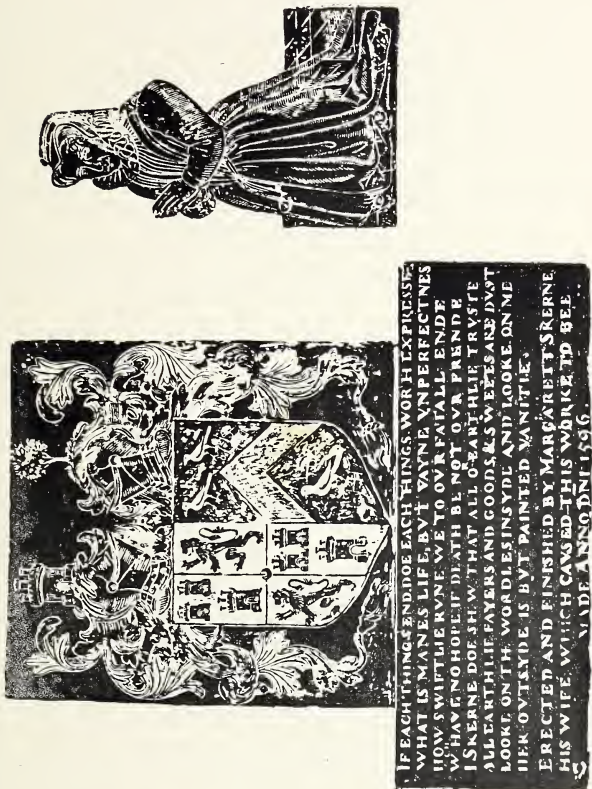 IF EACH THINGS END DOE EACH THINGS WORTH EXPRESSE
WHAT IS MANES LIFE, BVT VAYNE VNPERFECTNES
HOW SWIFTLIE RVNE WE TO OVR FATALL ENDE
W HAVE NO HOPE IF DEATH BE NOT OVR FRENDE
I SKERNE DOE SHEW THAT ALL O EARTHLIE TRVSTE
ALL EARTHLIE FAYERS AND GOODS, & SWEETS ARE DVST
LOOKE ON TH WORDLES INSYDE AND LOOKE ON ME
HER OVTSYDE IS BVT PAINTED VANITIE.
ERECTED AND FINISHED BY MARGARETT SKERNE
HIS WIFE WHICH CAVSED THIS WORKE TO BEE
MADE ANNO DNI 1596